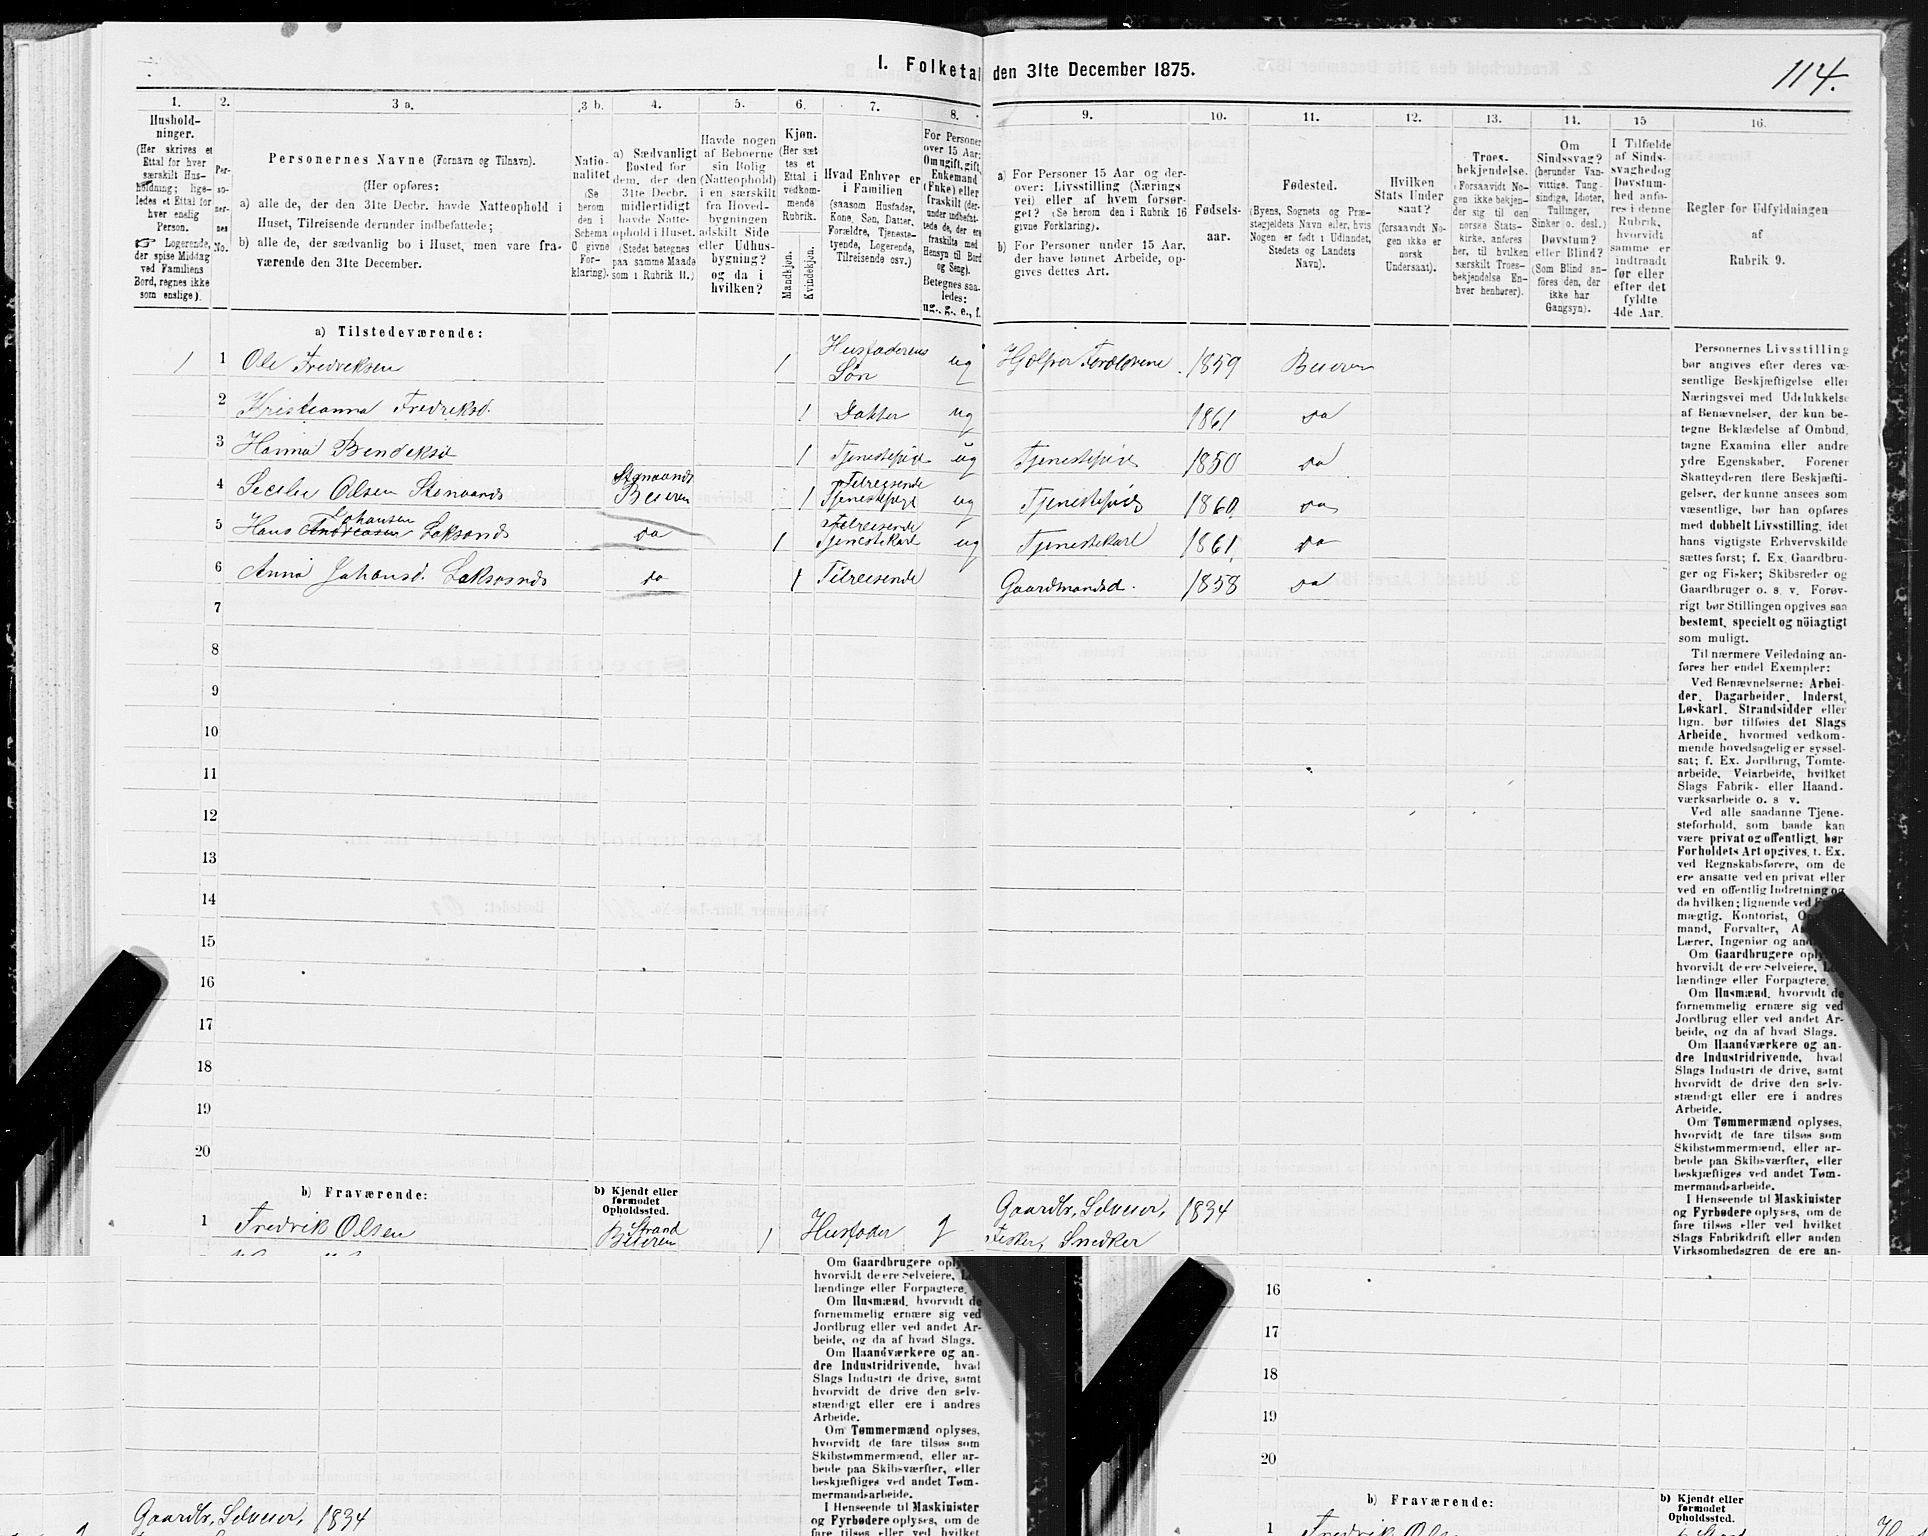 I. Folketal den 31te December 1875.
114.
1.
Hushold-
ninger.
(Her skrives et
Ettal for hver
særskilt Hus-
holdning; lige-
ledes et Ettal for
hver enslig
Person.
Logerende,
der spise Middag
ved Familiens
Bord, regnes ikke
som enslige).
2.
Per-
so-
ner-
nes
No.
3 a.
Personernes Navne (Fornavn og Tilnavn).
(Her opføres:
a) alle de, der den 31te Decbr. havde Natteophold i
Huset, Tilreisende derunder indbefattede;
b) alle de, der sædvanlig bo i Huset, men vare fra-
værende den 31te December.
3 b.
Natio-
nalitet
(Se
herom
den i
Schema
C givne
For-
klaring).
4.
a) Sædvanligt
Bosted for
dem, der den
31te Decbr.
midlertidigt
havde Natte-
ophold i Huset.
(Stedet betegnes
paa samme Maade
som i Rubrik 11.)
5.
Havde nogen
af Beboerne
sin Bolig
(Natteophold)
i en særskilt
fra Hoved-
bygningen
adskilt Side
eller Udhus-
bygning?
og da i
hvilken?
6.
Kjøn.
(Her sæt
tes et
Ettal i
vedkom-
mende
Rubrik.
Mandkjøn.
Kvindekjøn.
7.
Hvad Enhver er
i Familien
(saasom Husfader,
Kone, Søn, Datter,
Forældre, Tjeneste-
tyende, Logerende,
Tilreisende osv.)
8.
For Personer
over 15 Aar:
Om ugift, gift,
Enkemand
(Enke) eller
fraskilt (der-
under indbefat-
tede de, der ere
fraskilte med
Hensyn til Bord
og Seng).
Betegnes saa-
ledes:
ug., g., e., f.
9.
a) For Personer 15 Aar og der-
over: Livsstilling (Nærings
vei) eller af hvem forsør-
get? (Se herom den i Rubrik 16
givne Forklaring).
b) For Personer under 15 Aar,
der have lønnet Arbeide, op-
gives dettes Art.
10.
Fødsels-
aar.
11.
Fødested.
(Byens, Sognets og Præ-
stegjeldets Navn eller, hvis
Nogen er født i Udlandet,
Stedets og Landets
Navn).
12.
Hvilken
Stats Under
saat?
(forsaavidt No-
gen ikke er
norsk
Undersaat).
13.
Troes-
bekjendelse.
(Forsaavidt No-
gen ikke bekjen-
der sig til den
norske Stats-
kirke, anføres
her, til hvilken
særskilt Troes-
bekjendelse En-
hver henhører).
14.
Om
Sindssvag?
(herunder Van-
vittige, Tung-
sindige, Idioter,
Tullinger,
Sinker o. desl.)
Døvstum?
eller Blind?
(Som Blind an-
føres den, der
ikke har
Gangsyn).
15
I Tilfælde
af Sinds-
svaghed og
Døvstum-
hed anfø-
res i denne
Rubrik,
hvorvidt
samme er
indtraadt
før eller
efter det
fyldte
4de Aar.
16.
Regler for Udfyldningen
af
Rubrik 9.
a) Tilstedeværende:
1 1 Ole Fredriksen 1 Husfaderens Søn ug Hjælper Forældrene 1859 Beieren
2 Kristianna Fredriksd. 1 Datter ug 1861 Do
3 Hanna Bendiksd 1 Tjenestepige ug Tjenestepige 1850 Do
4 Olsen Stenaands Beieren 1 Tilreisende Tjenestepige ug Tjenestepige 1860 Do
5 Hans Johansen Laksaands Do 1 Tilreisende Tjenestekarl ug Tjenestekarl 1861 Do
6 Anna Johansd. Laksosnds Do 1 Tilreisende Gaardmandsd. 1858 Do
7
8
9
10
11
12
13
14
15
16
17
18
19
20
b) Fraværende:
b) Kjendt eller
formodet
Opholdssted.
1 Fredrik Olsen Strand Beieren 1 Husfader g Gaardbr, Selveier, Fisker, Snedker 1834
Personernes Livsstilling
bør angives efter deres væ-
sentlige Beskjæftigelse eller
Næringsvei med Udelukkelse
af Benævnelser, der kun be-
tegne Beklædelse af Ombud,
tagne Examina eller andre
ydre Egenskaber. Forener
Skatteyderen flere Beskjæfti-
gelser, der kunne ansees som
væsentlige, bør han opføres
med dobbelt Livsstilling, idet
hans vigtigste Erhvervskilde
sættes først; f. Ex. Gaardbru-
ger og Fisker; Skibsreder og
Gaardbruger o. s. v. Forøv-
rigt bør Stillingen opgives saa
bestemt, specielt og nöiagtigt
som muligt.
Til nærmere Veiledning an-
føres her endel Exempler:
Ved Benævnelserne: Arbei-
der, Dagarbeider, Inderst,
Løskarl, Strandsidder eller
lign. bør tilføies det Slags
Arbeide, hvormed vedkom-
mende hovedsagelig er syssel-
sat; f. Ex. Jordbrug, Tomte-
arbeide, Veiarbeide, hvilket
Slags Fabrik- eller Haand-
værksarbeide o. s v.
Ved alle saadanne Tjene-
steforhold, som baade kan
være privat og offentligt, bør
Forholdets Art opgives, t. Ex.
ved Regnskabsførere, om de
ere ansatte ved en privat eller
ved en offentlig Indretning og
da hvilken; lignende ved
mægtig, Kontorist,
mand, Forvalter,
Lærer, Ingeniør og
Om Gaardbrugere
hvorvidt de ere Selveiere,
lændinge eller Forpagtere.
Om Husmænd, hvorvidt de
fornemmelig ernære sig ved
Jordbrug eller ved andet Ar-
beide, og da af hvad Slags.
Om Haandværkere og an-
dre Industridrivende, hvad
Slags Industri de drive, samt
hvorvidt de drive den selv-
stændigt eller ere i andres
Arbeide.
Om Tømmermænd oplyses,
hvorvidt de fare tilsøs som
Skibstømmermænd, eller ar-
beide paa Skibsværfter, eller
beskjæftiges ved andet Tøm-
mermandsarbeide.
I Henseende til Maskinister
og Fyrbødere oplyses, om de
fare tilsøs eller ved hvilket
Slags Fabrikdrift eller anden
Virksomhedsgren de ere an-
Om Gaardbrugere
hvorvidt de ere Selveiere,
lændinge eller Forpagtere.
Om Husmænd, hvorvidt de
fornemmelig ernære sig ved
Jordbrug eller ved andet Ar-
beide, og da af hvad Slags.
Om Haandværkere og an-
dre Industridrivende, hvad
Slags Industri de drive, samt
hvorvidt de drive den selv-
stændigt eller ere i andres
Arbeide.
Om Tømmermænd oplyses,
hvorvidt de fare tilsøs som
Skibstømmermænd, eller ar-
beide paa Skibsværfter, eller
beskjæftiges ved andet Tøm-
mermandsarbeide.
I Henseende til Maskinister
og Fyrbødere oplyses, om de
fare tilsøs eller ved hvilket
Gaardbr, Selveier, 1834
16
17
18
19
20
b) Fraværende:
b) Kjendt eller
formodet
Opholdssted.
1 Fredrik Olsen